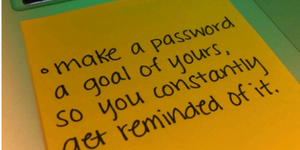 • make a password
a goal of yours,
so you constantly
get reminded of it.